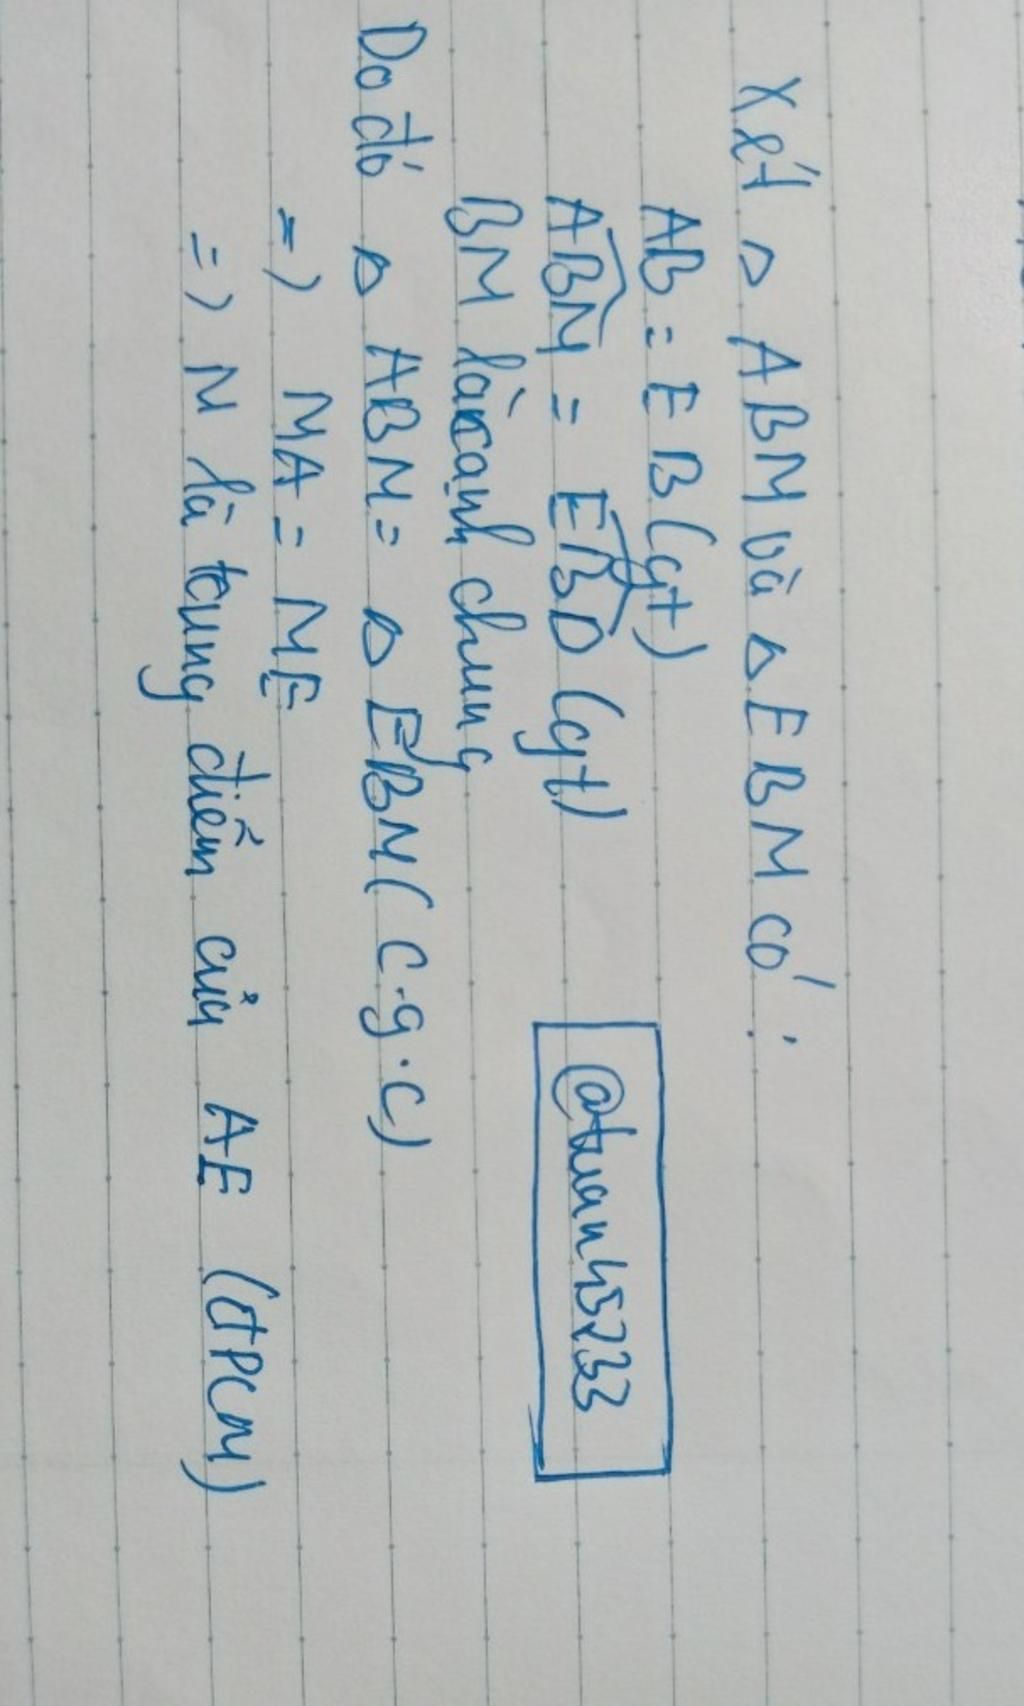 Xét △ ABM và △ EBM có:
AB = EB (gt)
ABM = EBD (gt)
@tuan45233
BM là cạnh chung
Do đó △ ABM = △ EBM (c.g.c)
=) MA = ME
=) M là trung điểm của AE (đPCM)